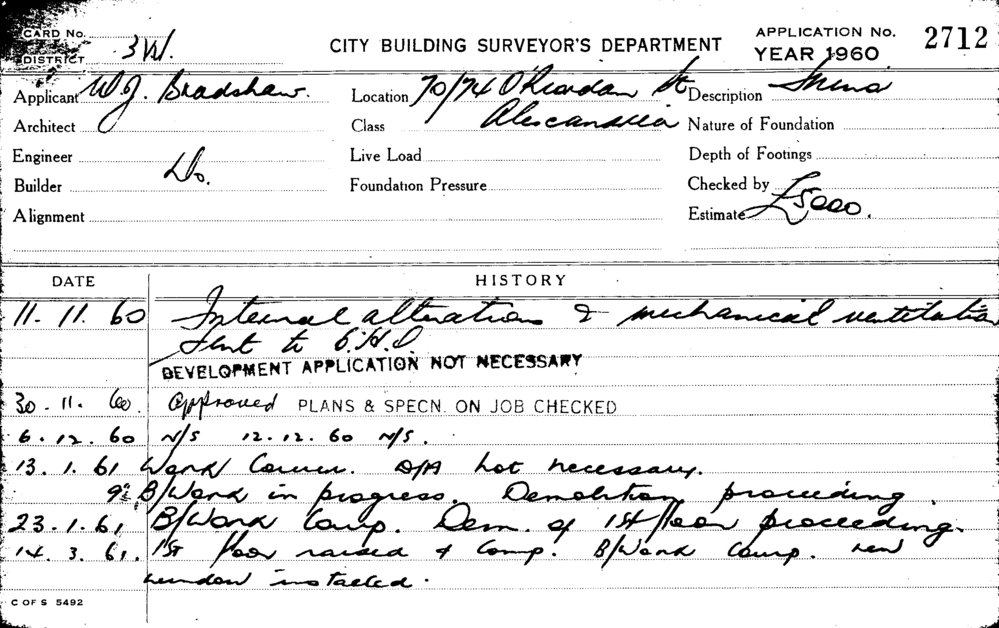 CARD No.
DISTRICT 3W.
CITY BUILDING SURVEYOR'S DEPARTMENT
APPLICATION No. 2712
YEAR 1960
Applicant W.J. Bradshaw. Location 70/74 O'Riordan St Description
Architect Class Alexandria Nature of Foundation
Engineer Do. Live Load Depth of Footings
Builder Foundation Pressure Checked by
Alignment Estimate £5000.
DATE HISTORY
11. 11. 60 Internal alterations & mechanical ventilation
Sent to C.H.O.
DEVELOPMENT APPLICATION NOT NECESSARY
30. 11. 60. Approved PLANS & SPECN. ON JOB CHECKED
6. 12. 60 N/S 12. 12. 60 N/S.
13. 1. 61 Work Commen. D/A not necessary.
9" B/Work in progress. Demolition proceeding.
23. 1. 61 B/Work Comp. Dem. of 1st floor proceeding.
14. 3. 61. 1st floor raised & Comp. B/Work Comp. new
window installed.
C OF S 5492